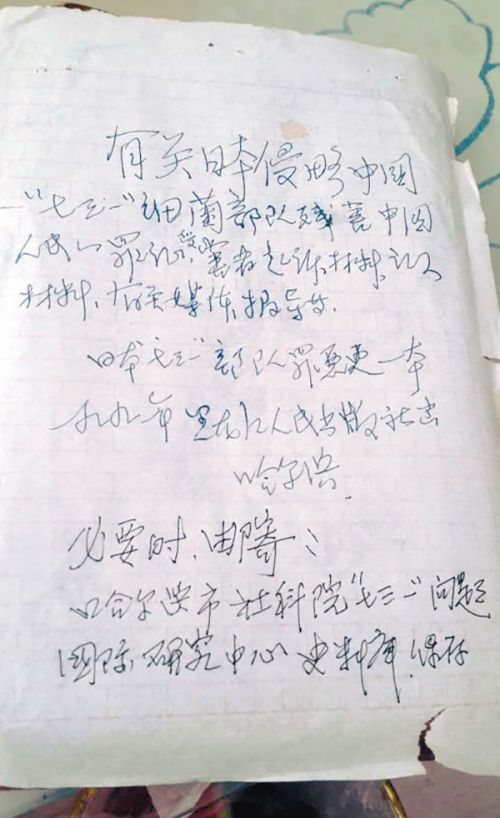 有关日本侵略中国
"七三一"细菌部队残害中国
人民的罪证,受害者起诉材料,证人
材料,有关媒体,报导等.
日本七三一部队罪恶史一本
九九年 黑龙江人民出版社出
哈尔滨.
必要时,邮寄:
哈尔滨市社科院"七三一"问题
国际研究中心史料库.保存